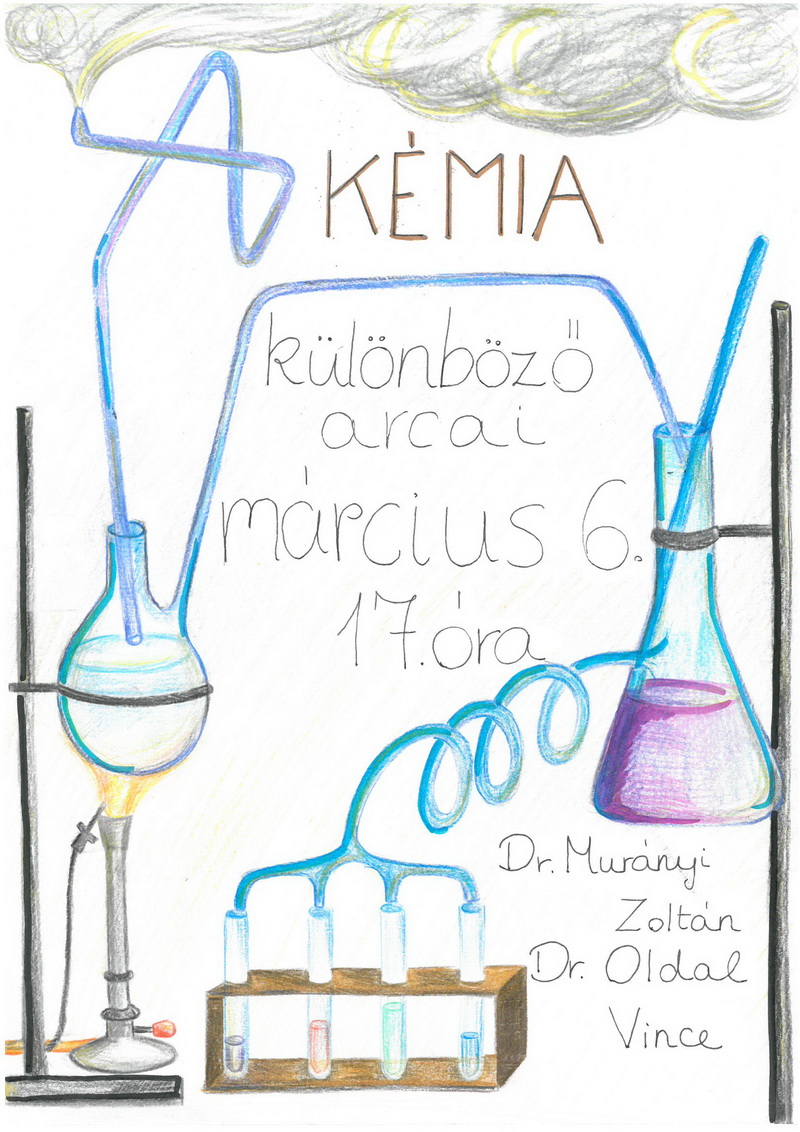 A KÉMIA
különböző
arcai
március 6.
17.óra
Dr. Murányi
Zoltán
Dr. Oldal
Vince